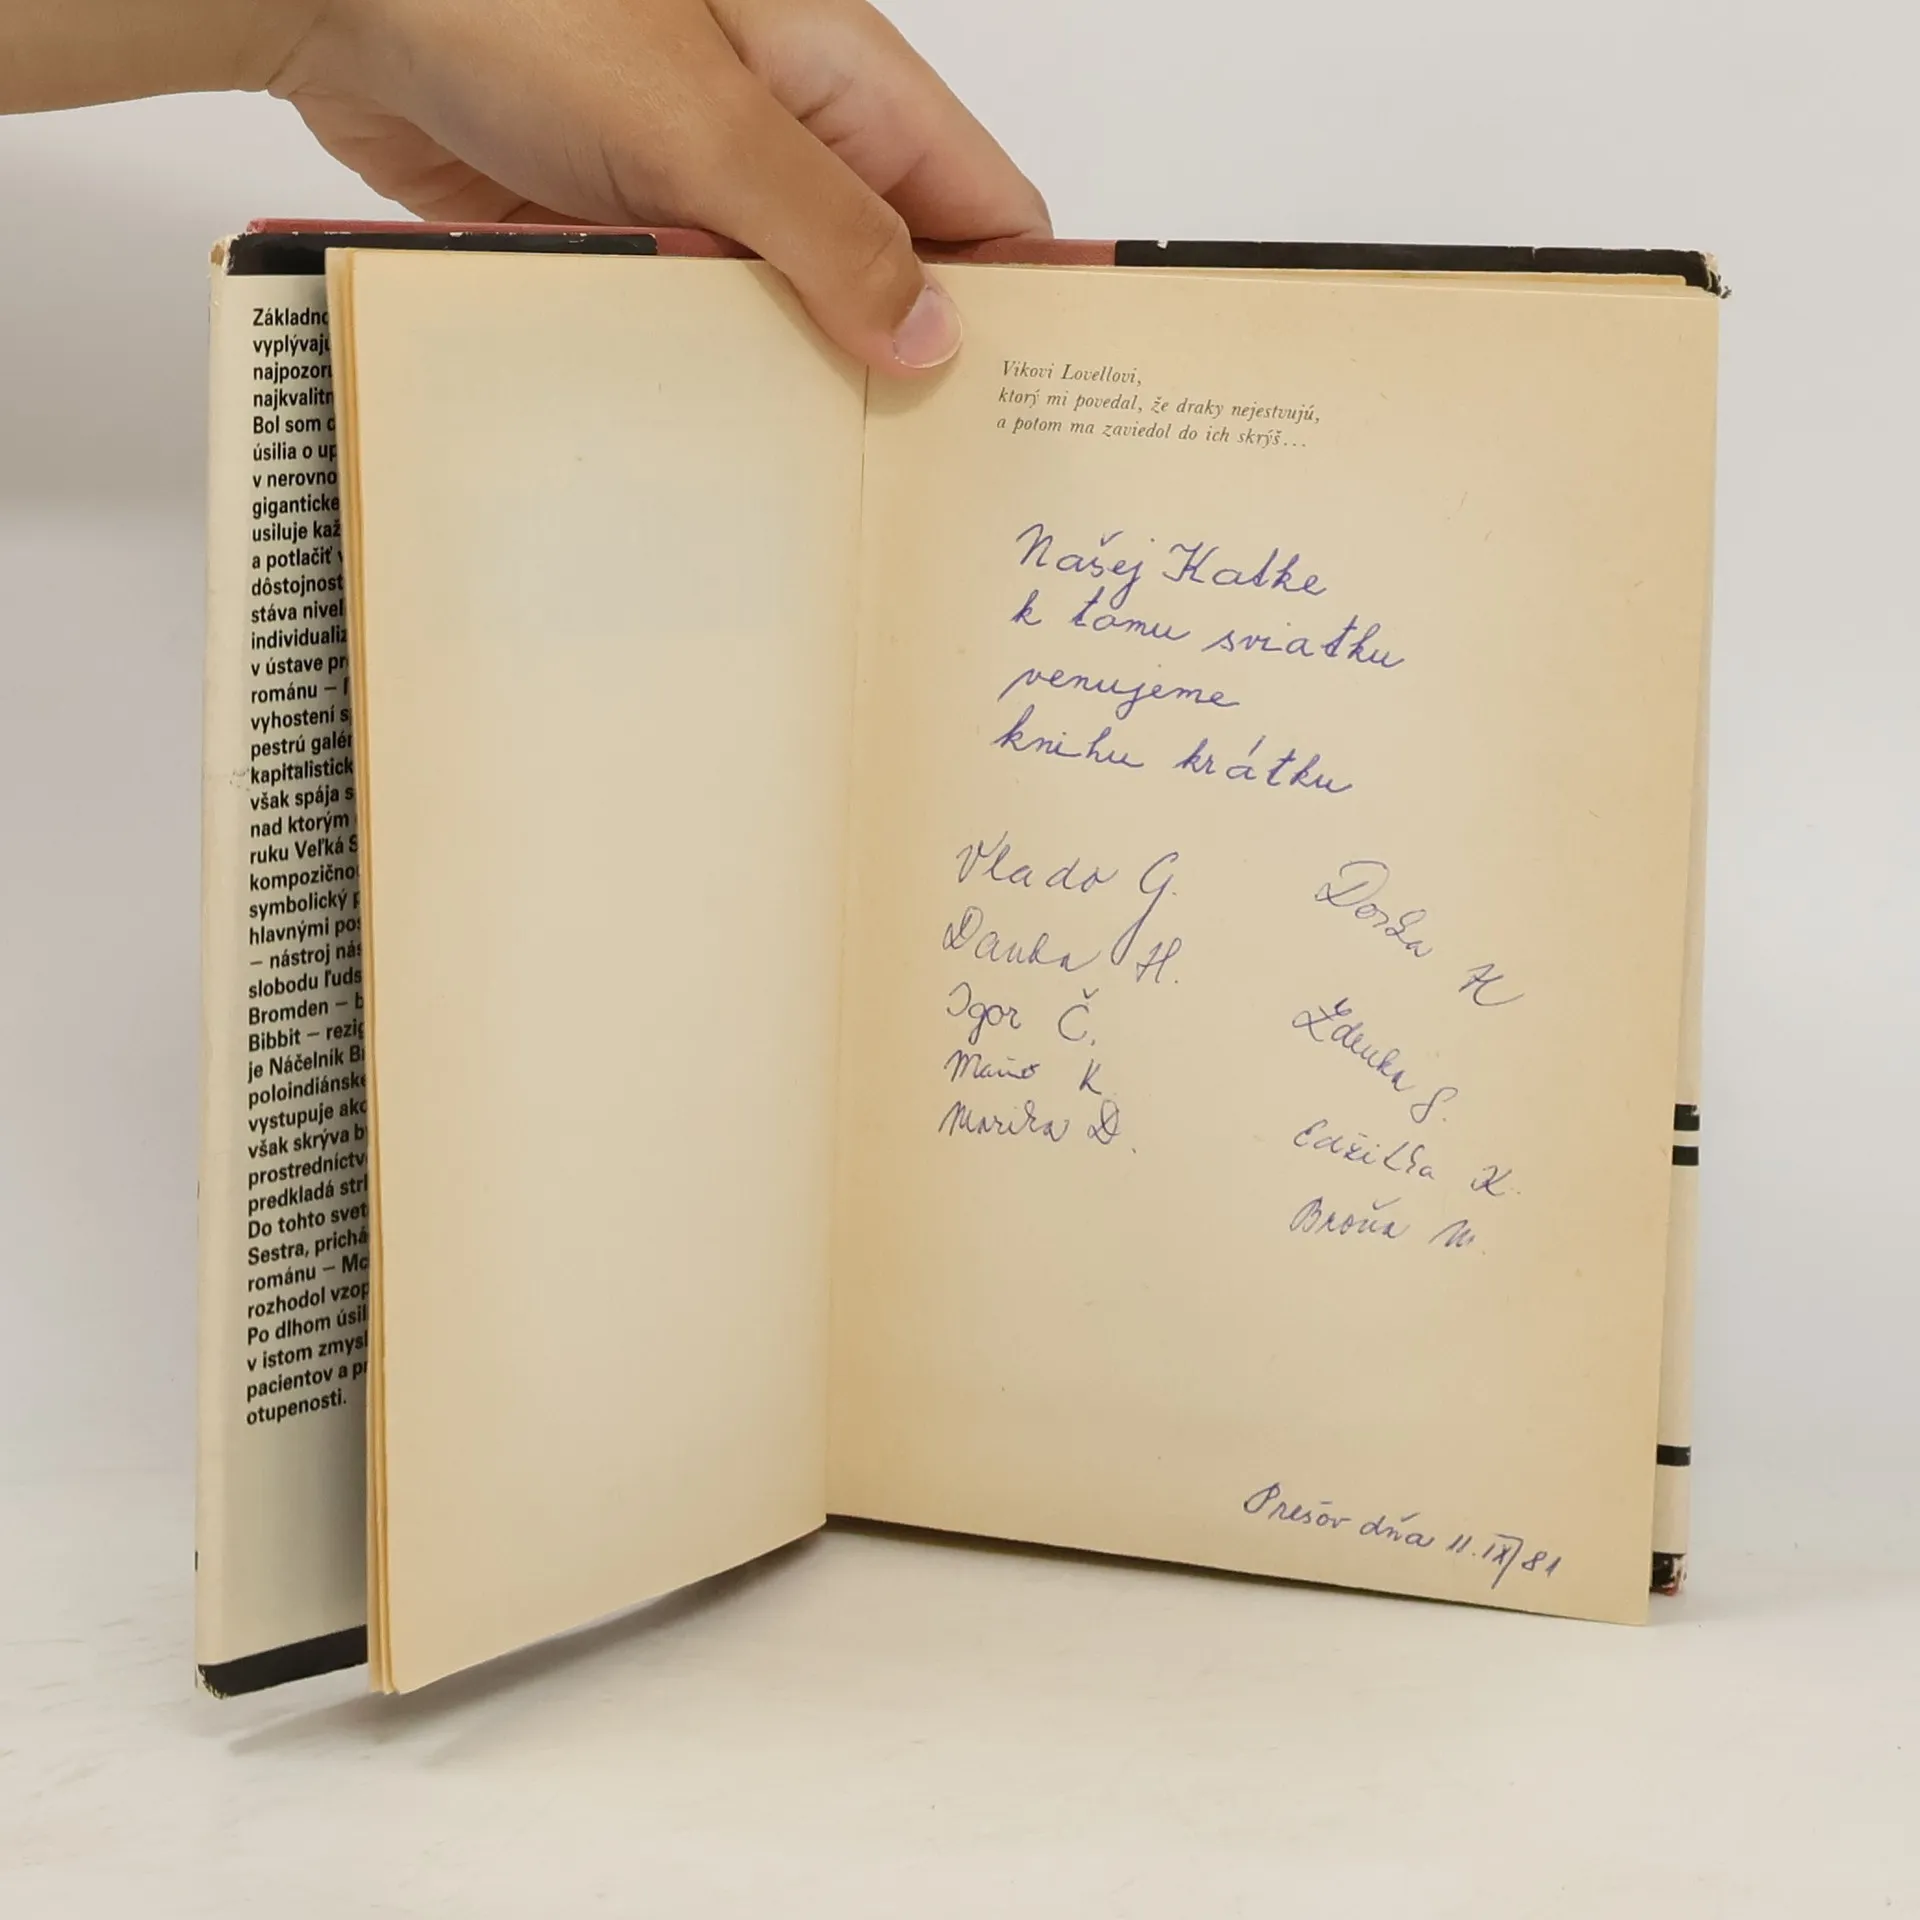 Základno
vyplývajú
najpozor
najkvalitn
Bol som
úsilia o up
v nerovno
gigantické
usiluje kaž
a potlačiť v
dôstojnost
stáva nivel
individualiz
v ústave pr
románu –
vyhostení s
pestrú galér
kapitalistick
však spája s
nad ktorým
ruku Veľká S
kompozično
symbolický p
hlavnými pos
– nástroj nás
slobodu ľuds
Bromden – b
Bibbit – rezig
je Náčelník B
poloindiánske
vystupuje ako
však skrýva b
prostredníctv
predkladá str
Do tohto svet
Sestra, prichá
románu – Mc
rozhodol vzop
Po dlhom úsil
v istom zmysl
pacientov a pr
otupenosti.
Vikovi Lovellovi,
ktorý mi povedal, že draky nejestvujú,
a potom ma zaviedol do ich skrýš...
Našej Katke
k tomu sviatku
venujeme
knihu krátku
Vlado G.
Danka H.
Igor Č.
K.
Marika D.
Dorka H
Zdenka S.
Editka K.
Broňa M.
Prešov dňa 11.IX/81